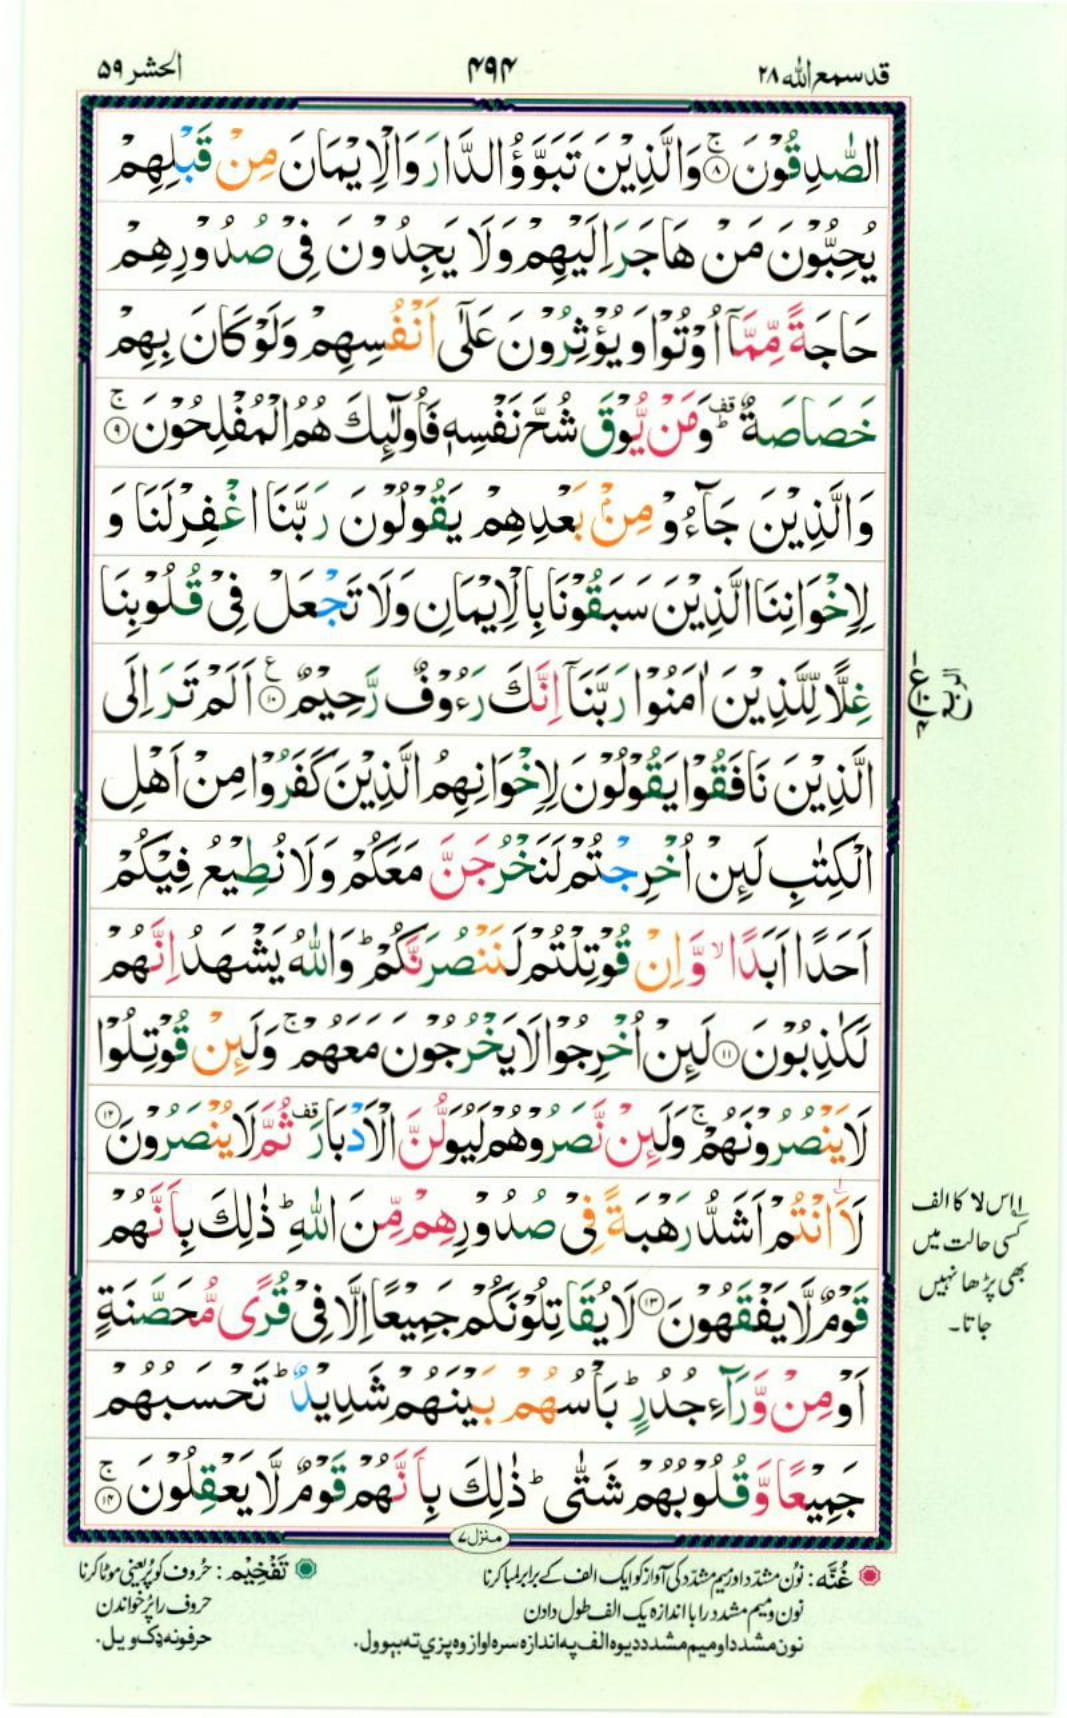 قد سمع الله ۲۸
۴۹۴
الحشر ۵۹
الصّٰدِقُوْنَ ۚ۝۸ وَالَّذِيْنَ تَبَوَّؤُ الدَّارَ وَالْاِيْمَانَ مِنْ قَبْلِهِمْ
يُحِبُّوْنَ مَنْ هَاجَرَ اِلَيْهِمْ وَلَا يَجِدُوْنَ فِيْ صُدُوْرِهِمْ
حَاجَةً مِّمَّآ اُوْتُوْا وَيُؤْثِرُوْنَ عَلٰٓى اَنْفُسِهِمْ وَلَوْ كَانَ بِهِمْ
خَصَاصَةٌ ؕقف وَمَنْ يُّوْقَ شُحَّ نَفْسِهٖ فَاُولٰٓئِكَ هُمُ الْمُفْلِحُوْنَ ۚ۝۹
وَالَّذِيْنَ جَآءُوْ مِنْۢ بَعْدِهِمْ يَقُوْلُوْنَ رَبَّنَا اغْفِرْ لَنَا وَ
لِاِخْوَانِنَا الَّذِيْنَ سَبَقُوْنَا بِالْاِيْمَانِ وَلَا تَجْعَلْ فِيْ قُلُوْبِنَا
غِلًّا لِّلَّذِيْنَ اٰمَنُوْا رَبَّنَآ اِنَّكَ رَءُوْفٌ رَّحِيْمٌ ۝۱۰ع اَلَمْ تَرَ اِلَى
الَّذِيْنَ نَافَقُوْا يَقُوْلُوْنَ لِاِخْوَانِهِمُ الَّذِيْنَ كَفَرُوْا مِنْ اَهْلِ
الْكِتٰبِ لَئِنْ اُخْرِجْتُمْ لَنَخْرُجَنَّ مَعَكُمْ وَلَا نُطِيْعُ فِيْكُمْ
اَحَدًا اَبَدًا ۙ وَّاِنْ قُوْتِلْتُمْ لَنَنْصُرَنَّكُمْ ؕ وَاللّٰهُ يَشْهَدُ اِنَّهُمْ
لَكٰذِبُوْنَ ۝۱۱ لَئِنْ اُخْرِجُوْا لَا يَخْرُجُوْنَ مَعَهُمْ ۚ وَلَئِنْ قُوْتِلُوْا
لَا يَنْصُرُوْنَهُمْ ۚ وَلَئِنْ نَّصَرُوْهُمْ لَيُوَلُّنَّ الْاَدْبَارَ قف ثُمَّ لَا يُنْصَرُوْنَ ۝۱۲
لَاَ۠انْتُمْ اَشَدُّ رَهْبَةً فِيْ صُدُوْرِهِمْ مِّنَ اللّٰهِ ؕ ذٰلِكَ بِاَنَّهُمْ
قَوْمٌ لَّا يَفْقَهُوْنَ ۝۱۳ لَا يُقَاتِلُوْنَكُمْ جَمِيْعًا اِلَّا فِيْ قُرًى مُّحَصَّنَةٍ
اَوْ مِنْ وَّرَآءِ جُدُرٍ ؕ بَاْسُهُمْ بَيْنَهُمْ شَدِيْدٌ ؕ تَحْسَبُهُمْ
جَمِيْعًا وَّقُلُوْبُهُمْ شَتّٰى ؕ ذٰلِكَ بِاَنَّهُمْ قَوْمٌ لَّا يَعْقِلُوْنَ ۚ۝۱۴
منزل ۷
الربع
ع
۴
۱؎ اس لا کا الف
کسی حالت میں
بھی پڑھا نہیں
جاتا۔
غُنَّہ: نُون مشدّد اور میم مشدّد کی آواز کو ایک الف کے برابر لمبا کرنا
نون و میم مشدد را با اندازہ یک الف طول دادن
نون مشدد او میم مشدد دیوہ الف پہ اندازہ سرہ اواز وہ پزي تہ بیوول.
تَفْخِیْم: حُروف کو پُر یعنی موٹا کرنا
حروف را پُر خواندن
حرفونہ ډک ویل.